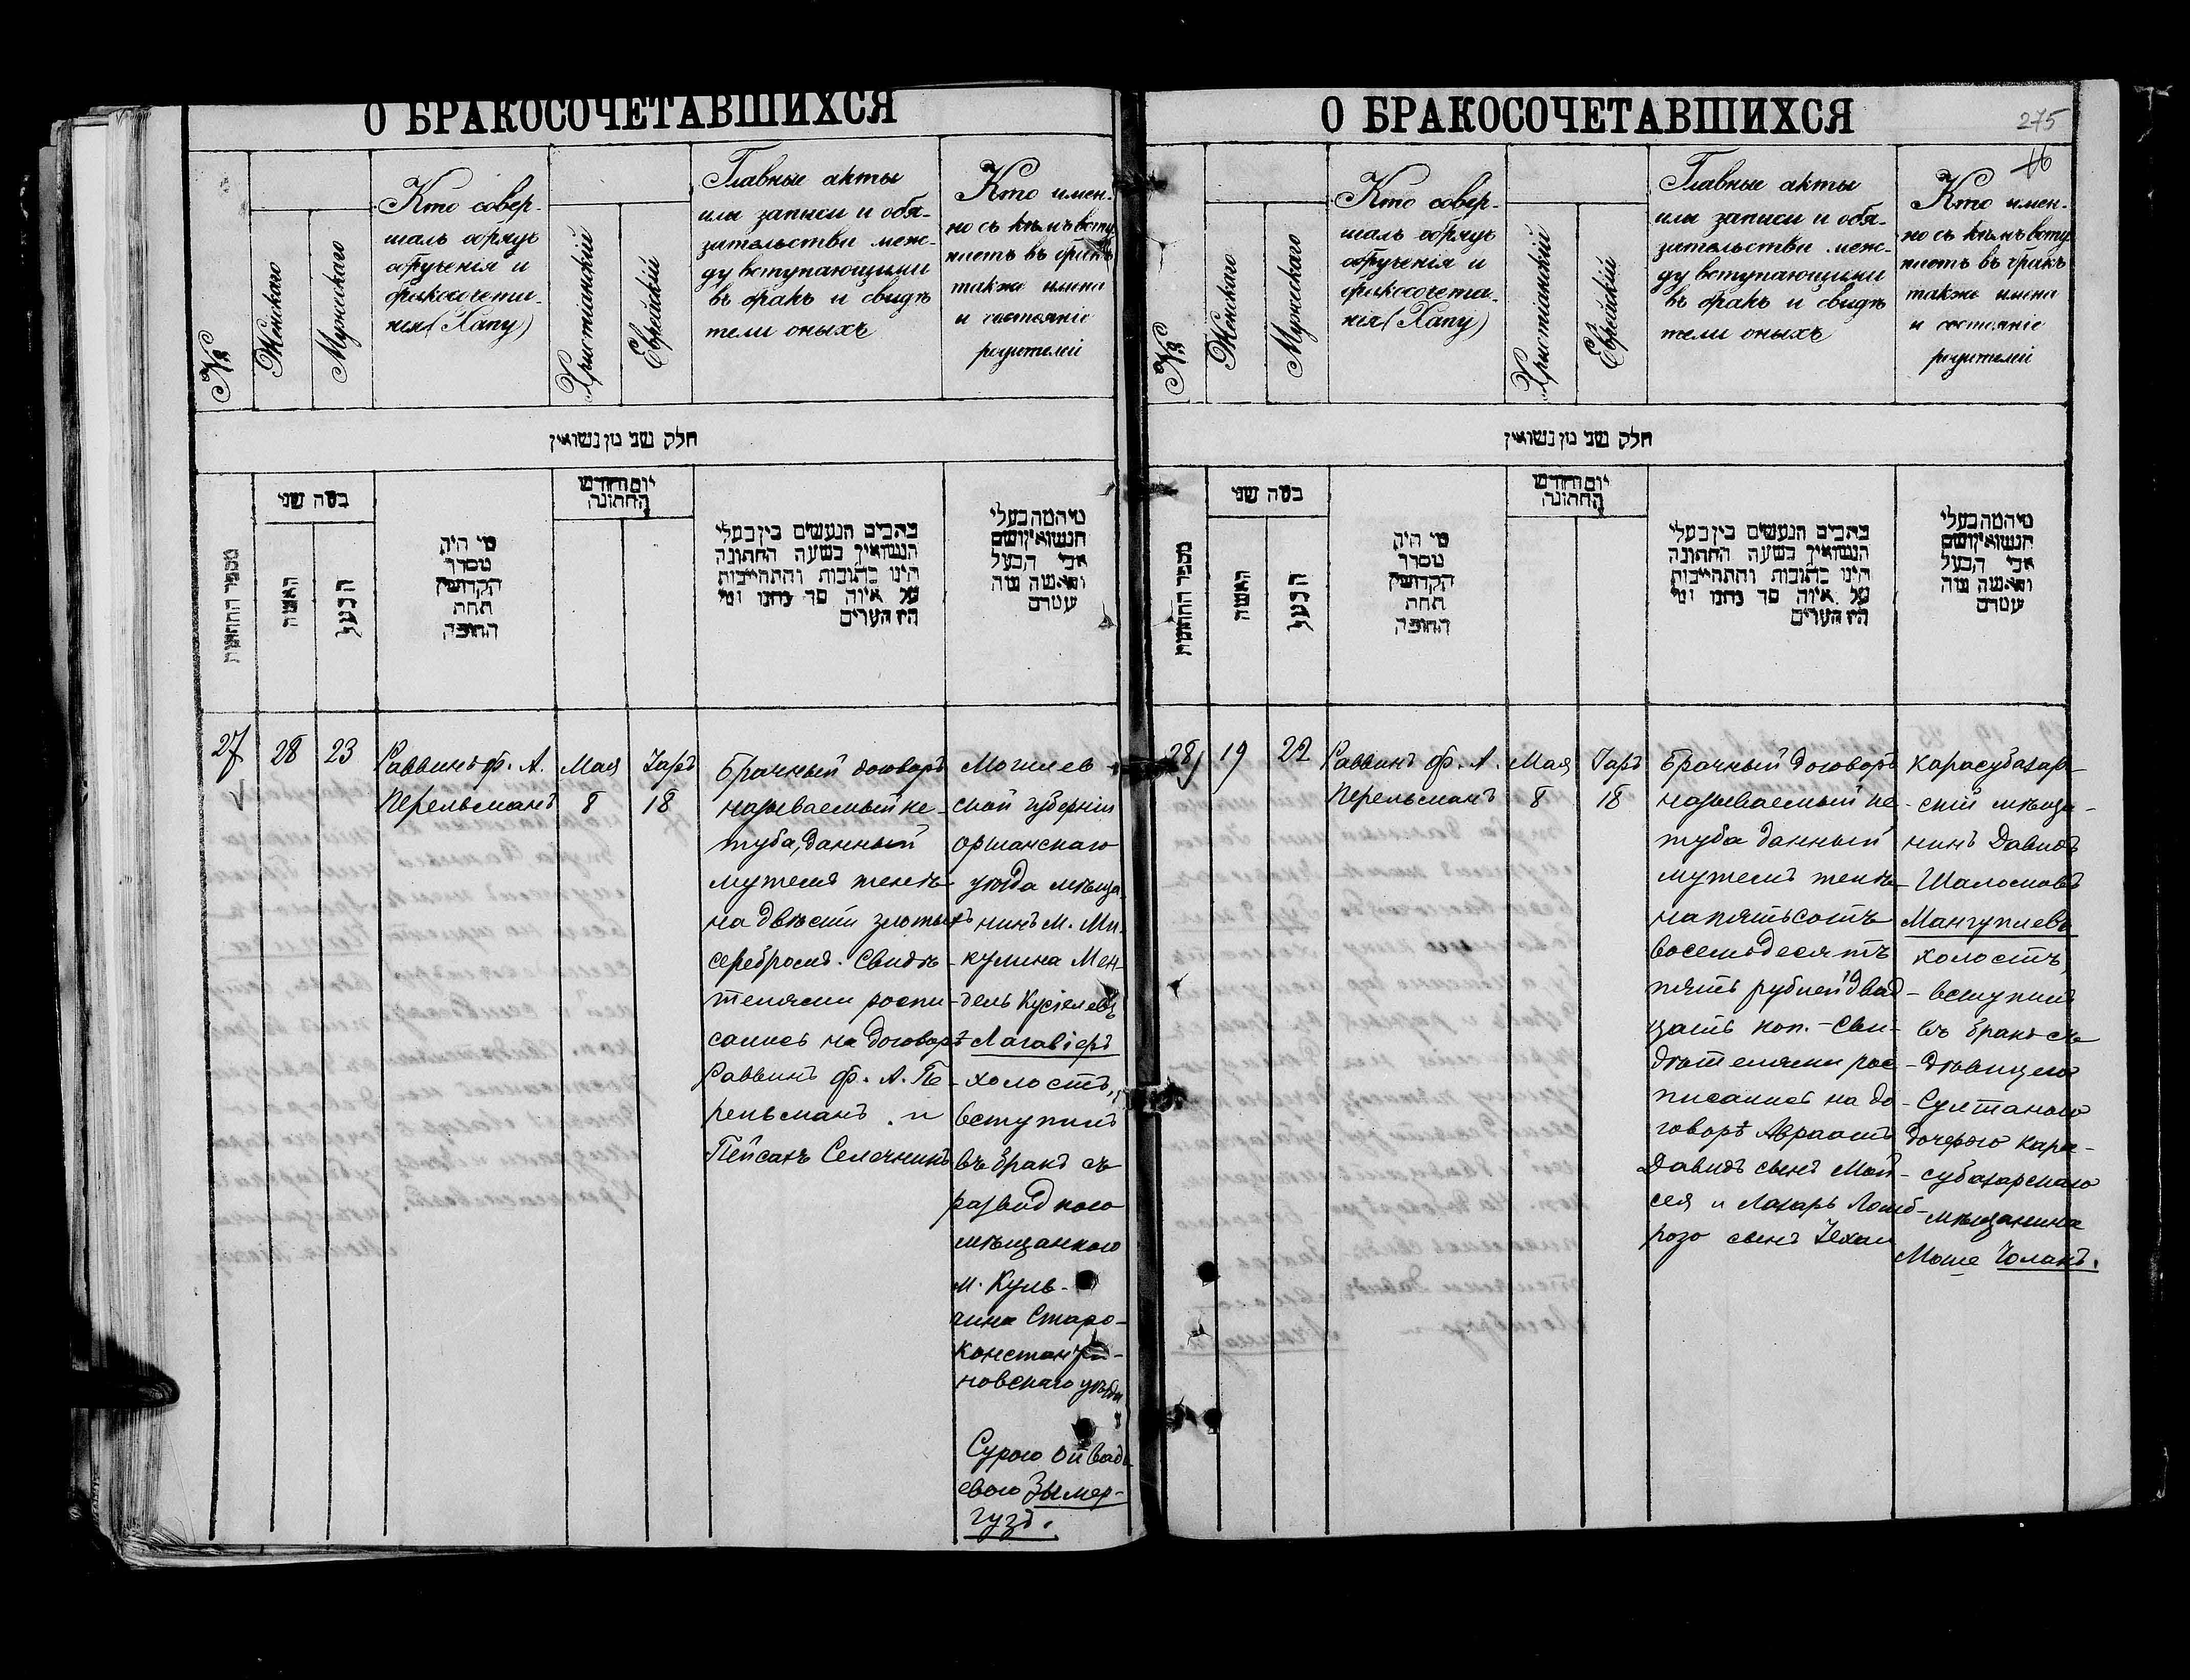 О БРАКОСОЧЕТАВШИХСЯ
№
Женскаго
Мужескаго
Кто совер-
шалъ обрядъ
обрученія и
бракосочета-
нія (Хапу)
Христіанскій
Еврейскій
Главные акты
или записи и обя-
зательства меж-
ду вступающими
въ бракъ и свидѣ
тели оныхъ
Кто имен-
но съ кѣмъ всту
паетъ въ бракъ
также имена
и состояніе
родителей
חלק שני מן נשואין
מספר החתונות
כמה שני
האשה
הבעל
מי היה
מסדר
הקדושין
תחת
החופה
יום וחודש
החתונה
כתבים הנעשים בין בעלי
הנשואין בשעה החתונה
היינו כתובות והתחייבות
על איזה סך נתנו ומי
היו העדים
מי המה בעלי
הנשואין ושם
אבי הבעל
והאשה מה
מעמדם
27
28
23
Раввинъ Ф. А.
Перельманъ
Мая
8
Іаръ
18
Брачный договоръ
называемый ке-
туба, данный
мужемъ женѣ
на двѣсти злотыхъ
серебромъ. Свидѣ-
телями роспи-
сались на договорѣ
Раввинъ Ф. А. Пе-
рельманъ и
Пейсахъ Селечникъ
Могилев-
ской губерніи
оршанскаго
уѣзда мѣща
нинъ м. Ми-
кулина Мен-
дель Кусіелевъ
Магавіеръ
холостъ,
вступилъ
въ бракъ съ
разводною
мѣщанкою
м. Куль-
чина Старо-
константи-
новскаго уѣзда
Сурою
евою Зымер-
гузъ.
О БРАКОСОЧЕТАВШИХСЯ
275
16
№
Женскаго
Мужескаго
Кто совер-
шалъ обрядъ
обрученія и
бракосочета-
нія (Хапу)
Христіанскій
Еврейскій
Главные акты
или записи и обя-
зательства меж-
ду вступающими
въ бракъ и свидѣ
тели оныхъ
Кто имен-
но съ кѣмъ всту
паетъ въ бракъ
также имена
и состояніе
родителей
חלק שני מן נשואין
מספר החתונות
כמה שני
האשה
הבעל
מי היה
מסדר
הקדושין
תחת
החופה
יום וחודש
החתונה
כתבים הנעשים בין בעלי
הנשואין בשעה החתונה
היינו כתובות והתחייבות
על איזה סך נתנו ומי
היו העדים
מי המה בעלי
הנשואין ושם
אבי הבעל
והאשה מה
מעמדם
28
19
22
Раввинъ Ф. А.
Перельманъ
Мая
8
Іаръ
18
Брачный договоръ
называемый ке-
туба данный
мужемъ женѣ
на пятьсотъ
восемьдесятъ
пять рублей двад-
цать коп. - Сви-
дѣтелями рос-
писались на до-
говорѣ Авраамъ
Давидъ сынъ Мой-
сея и Лазарь Ломб-
розо сынъ
карасубазар-
скій мѣща-
нинъ Давидъ
Шаломовъ
Мангупіевъ
холостъ,
вступилъ
въ бракъ съ
дѣвицею
Султаною
дочерью кара-
субазарскаго
мѣщанина
Моше Чолакъ.